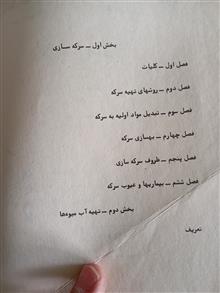 بخش اول ــ سرکه سازی
فصل اول ــ کلیات
فصل دوم ــ روشهای تهیه سرکه
فصل سوم ــ تبدیل مواد اولیه به سرکه
فصل چهارم ــ بهسازی سرکه
فصل پنجم ــ ظروف سرکه سازی
فصل ششم ــ بیماریها و عیوب سرکه
بخش دوم ــ تهیه آب میوه‌ها
تعریف